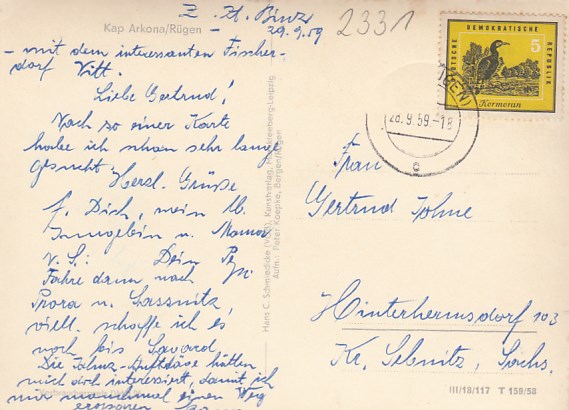 Z. Zt. Binz
29.9.59
2331
Kap Arkona/Rügen -
- mit dem interessanten Fischer-
dorf Vitt.
Liebe Gertrud!
Nach so einer Karte
habe ich schon sehr lange
gesucht. Herzl. Grüße
f. Dich, mein lb.
u. Mann
Dein
Fahre dann nach
Prora u. Sassnitz,
viell. schaffe ich es
noch bis
Die hätten
mich doch interessiert, damit ich
mir manchmal einen Weg
Hans C. Schmiedicke (VOB), Kunstverlag, Markkleeberg-Leipzig
Aufn.: Peter Koepke, Bergen/Rügen
DEUTSCHE DEMOKRATISCHE REPUBLIK
5
Kormoran
28.9.59-18
c
Frau
Gertrud
Hinterhermsdorf 103
Kr. Sebnitz, Sachs.
III/18/117 T 159/58